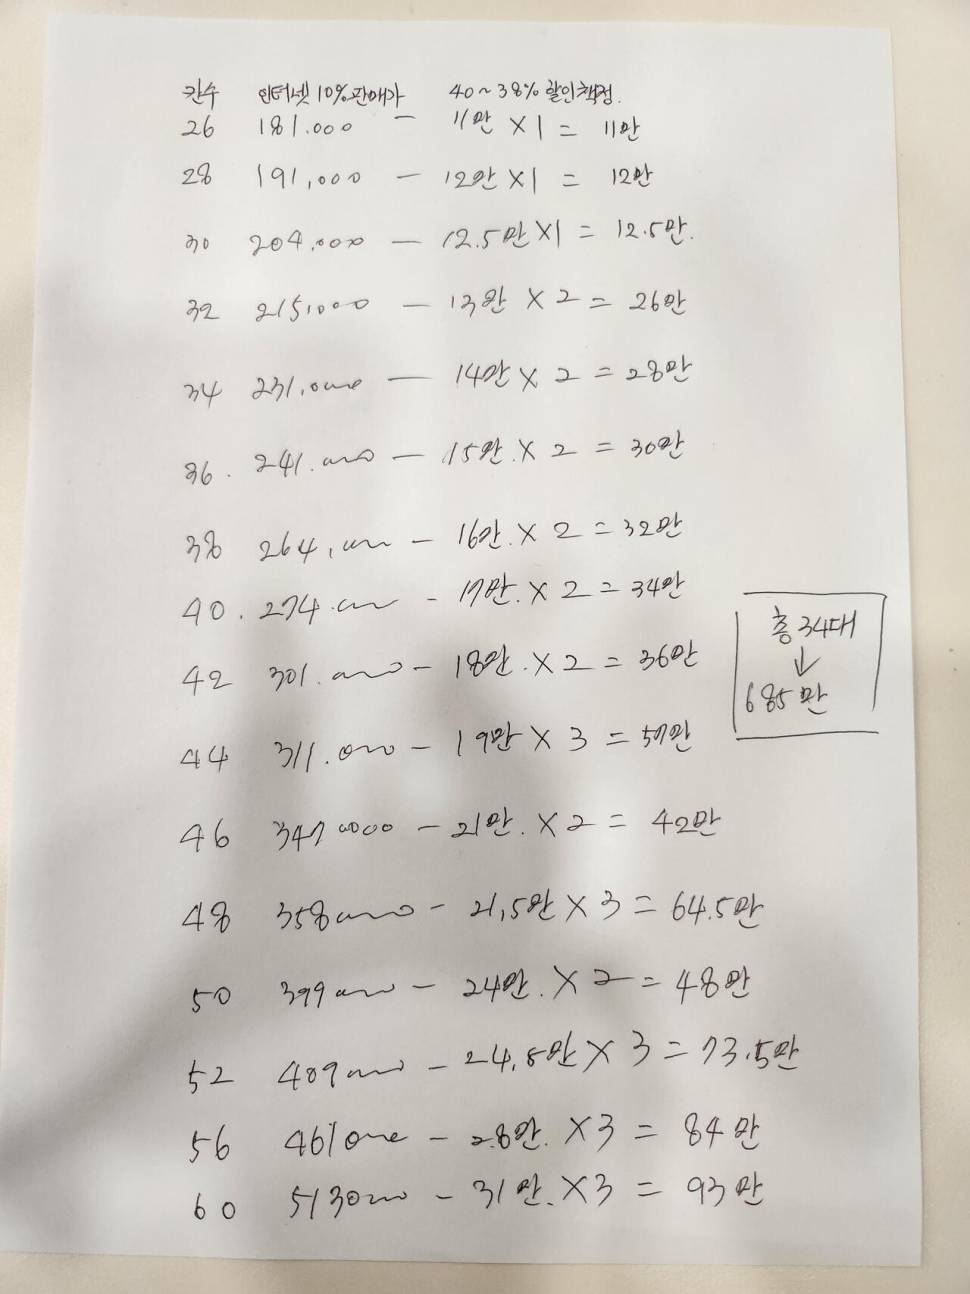 칸수 인터넷 10% 판매가 40~38% 할인책정.
26 181.000 - 11만 X 1 = 11만
28 191,000 - 12만 X 1 = 12만
30 204,000 - 12.5만 X 1 = 12.5만.
32 215,000 - 13만 X 2 = 26만
34 231.000 - 14만 X 2 = 28만
36. 241.000 - 15만. X 2 = 30만
38 264,000 - 16만. X 2 = 32만
40. 274.000 - 17만. X 2 = 34만
42 301.000 - 18만. X 2 = 36만
44 311.000 - 19만 X 3 = 57만
46 347000 - 21만. X 2 = 42만
48 358000 - 21,5만 X 3 = 64.5만
50 399000 - 24만. X 2 = 48만
52 409000 - 24,5만 X 3 = 73.5만
56 461000 - 28만. X 3 = 84만
60 513000 - 31만. X 3 = 93만
총 34대
↓
685만